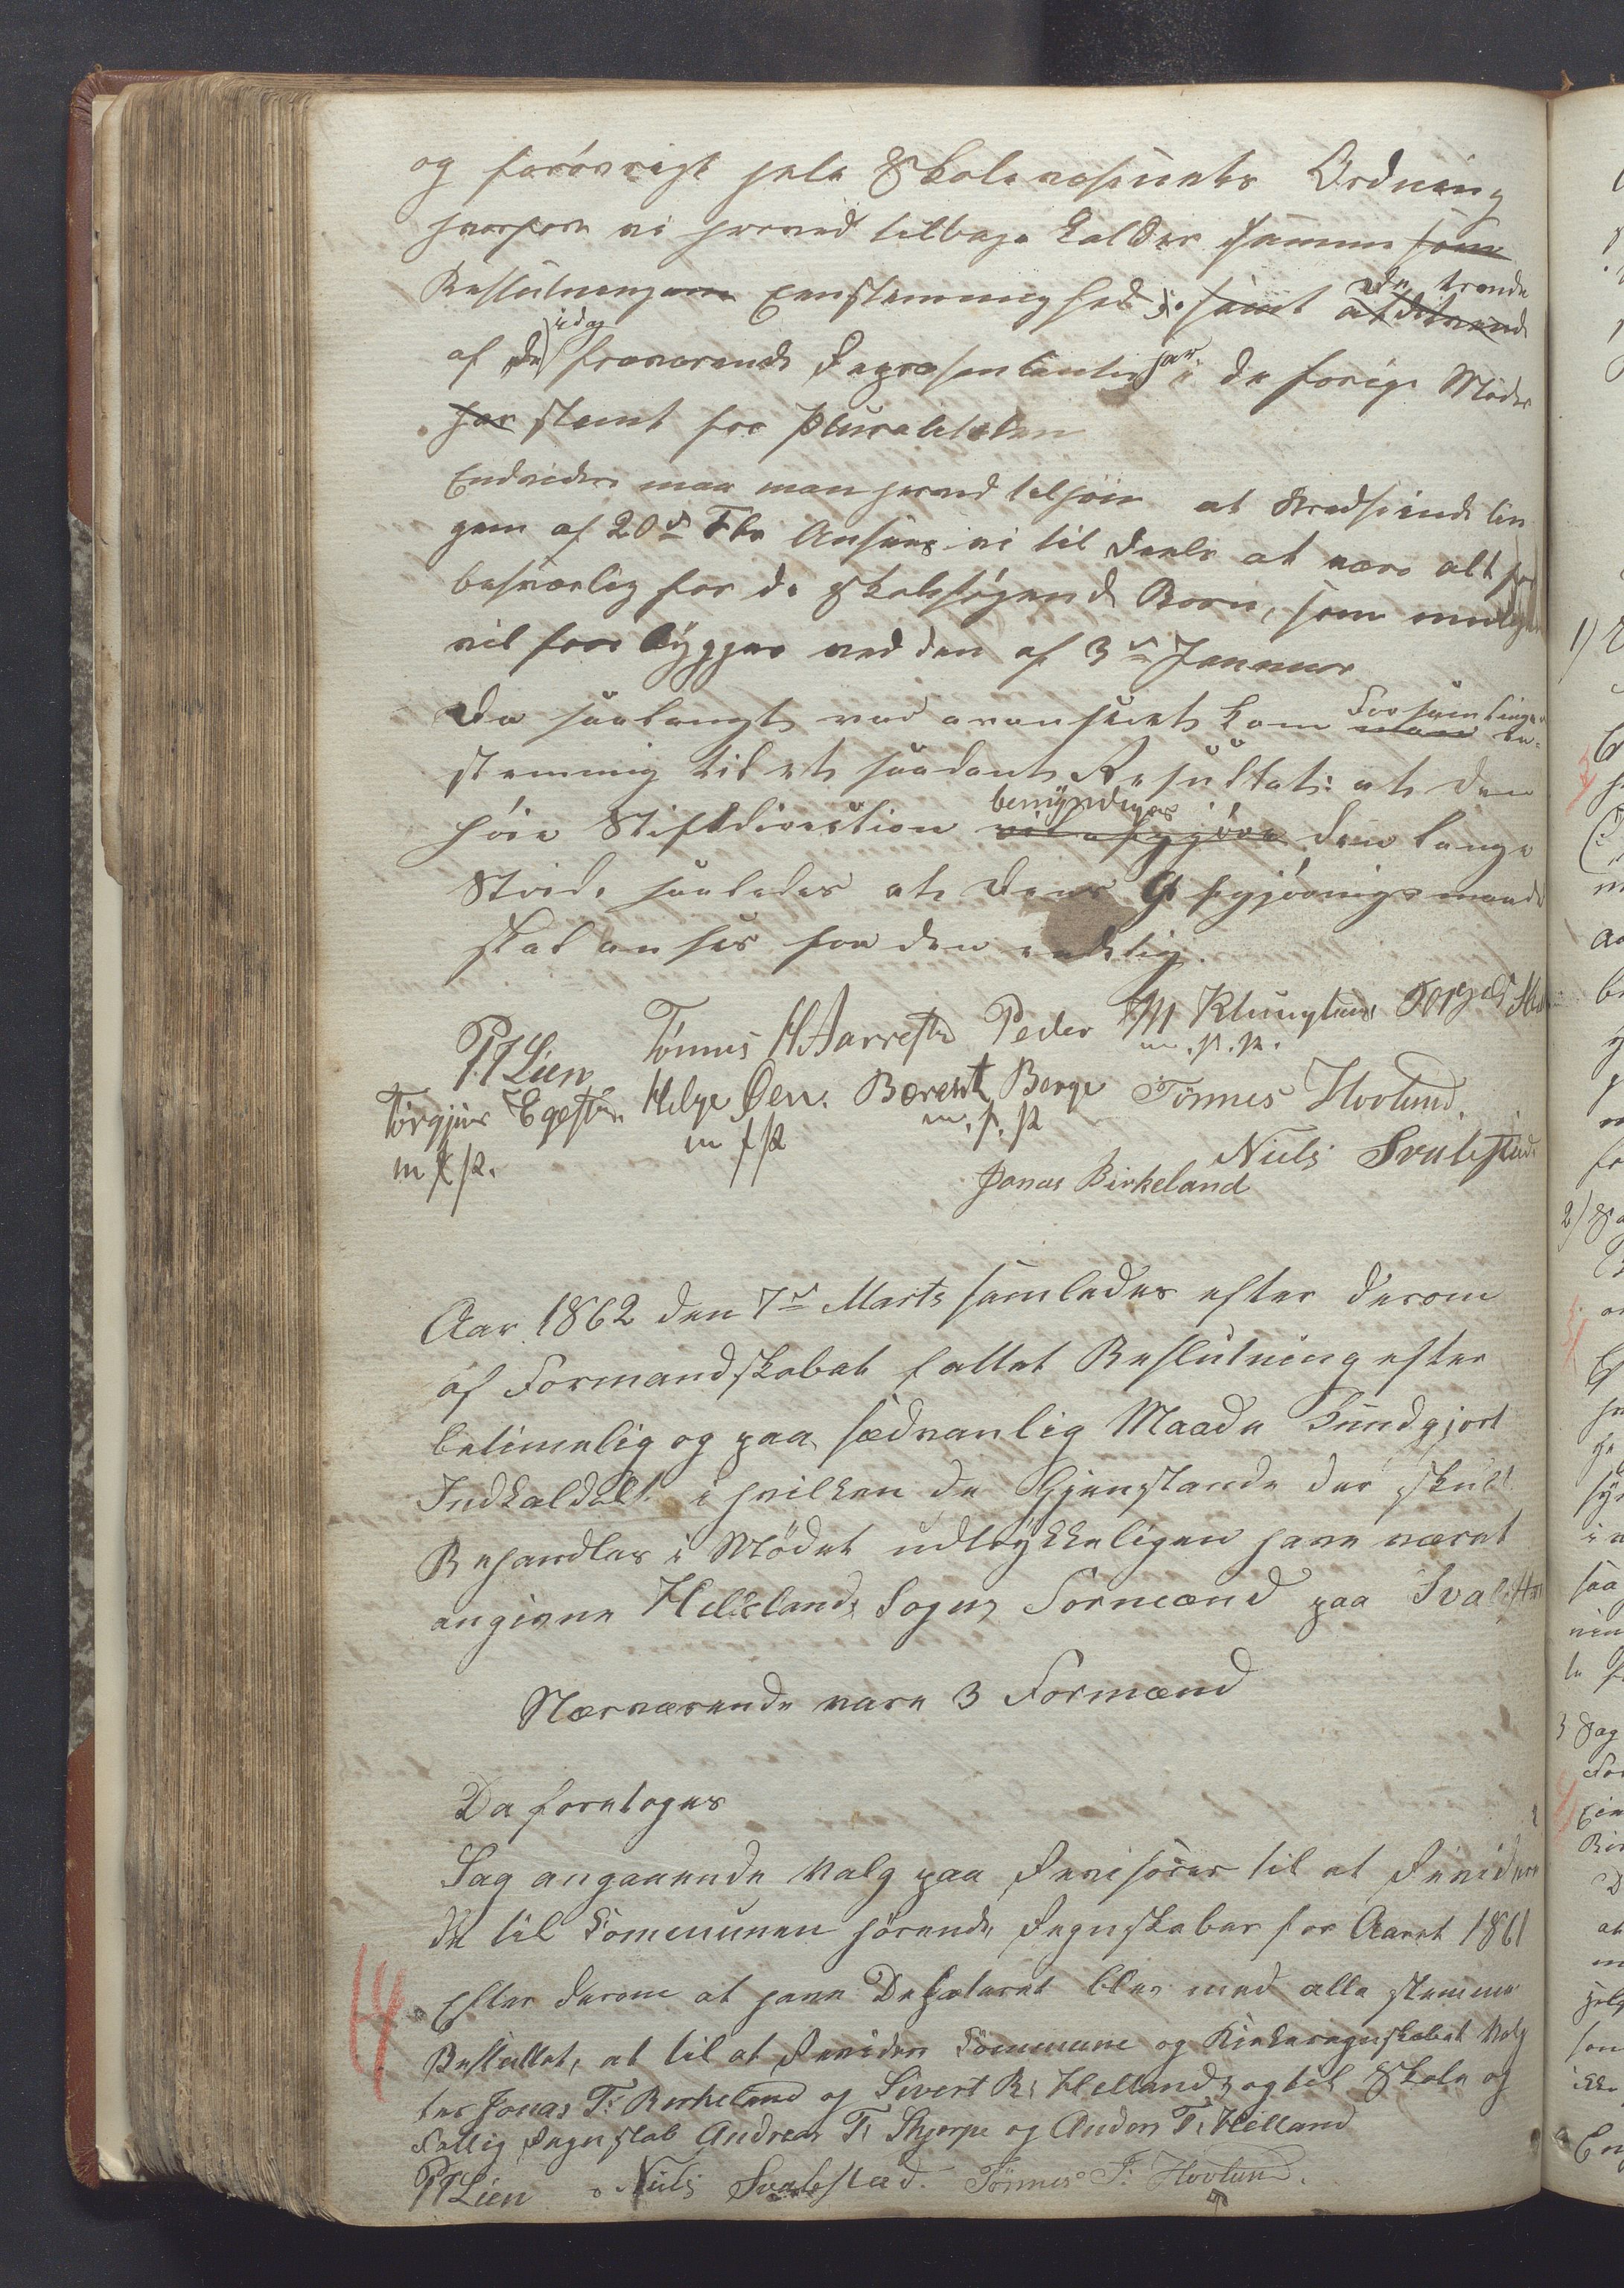 og forøvrigt hele Skolevesenets Ordning
hvorfore vi herved tilbage kalder samme som
Beslutningen Eenstemmighed. samt at de trende
af de idag fraværende Repræsentanter har i de forige Møder
har stemt for Pluraliteten
Endvidere maa man herved tilføie at Kredsindelin
gen af 20de Fbr Ansees vi til Deels at være alt for
besværlig for de Skolesøgende Børn, som muligen
vil forebygges ved den af 3de Januar
Da saalangt var avanseret kom Forsamlingen man be-
stemmig til et saadant Resultat: at den
høie Stiftdirection bemyndiges vil afgjøre den lange
Strid, saaledes at Dens Afgjørnigsmaade
skal ansees for den endelig.
PT Lien Tønnes H Aarrestad Peder M Klungland Torger
m.f.P.
Torgjus Egestad Helge Øen. Bærent Berge Tønnes Hovland.
m f P. m f P m.f.P
Niels Svalestad
Jonas Birkeland
Aar 1862 den 7de Marts samledes efter derom
af Formandskabet fattet Beslutning efter
betimelig og paa sædvanlig Maade kundgjort
Indkaldelse i hvilken de Gjenstande der skulde
Behandles i Mødet udtrykkeligen have været
angivne Hellelands Sogns Formænd paa Svalestad
Nærværende vare 3 Formænd
Da foretoges
Sag angaaende Valg paa Revisorer til at Revidere
de til Kommunen hørende Regnskaber for Aaret 1861
Efter derom at have Debateret blev med alle stemmer
Besluttet, at til at Revidere Kommune og Kirkeregnskabet Valg
tes Jonas T: Birkeland og Sivert R: Helland og til Skole og
Fattig Regnskab Andreas T: Skjerpe og Anders T: Helland
PT Lien Niels Svalestad. Tønnes T: Hovland.